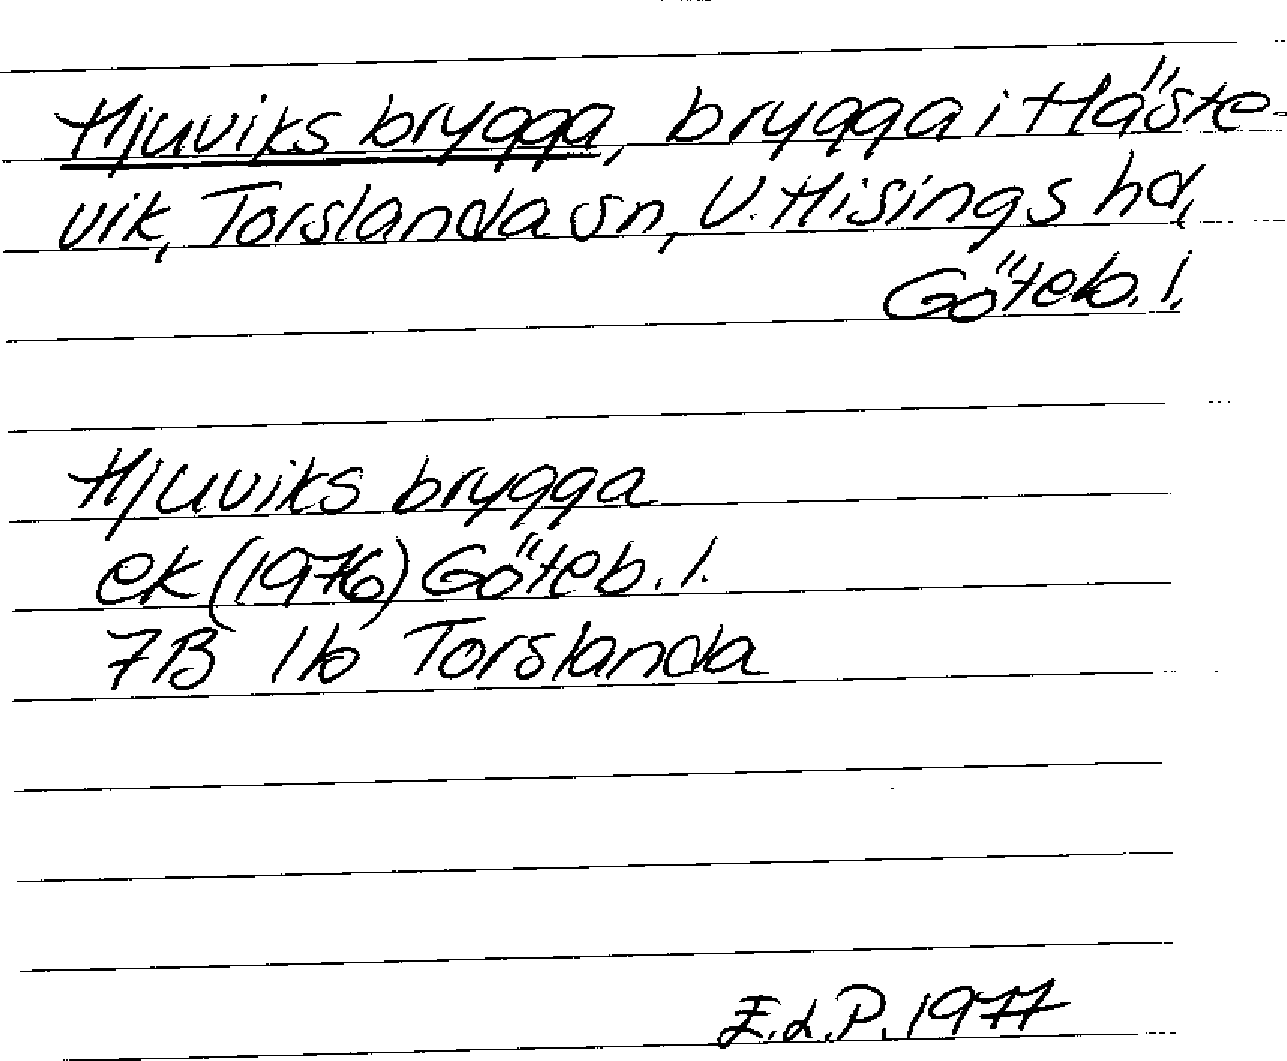 Hjuviks brygga, brygga i Häste-
vik, Torslanda sn, V. Hisings hd,
Göteb. l.
Hjuviks brygga
ek (1976) Göteb. l.
7B 1b Torslanda
E.d.P. 1977